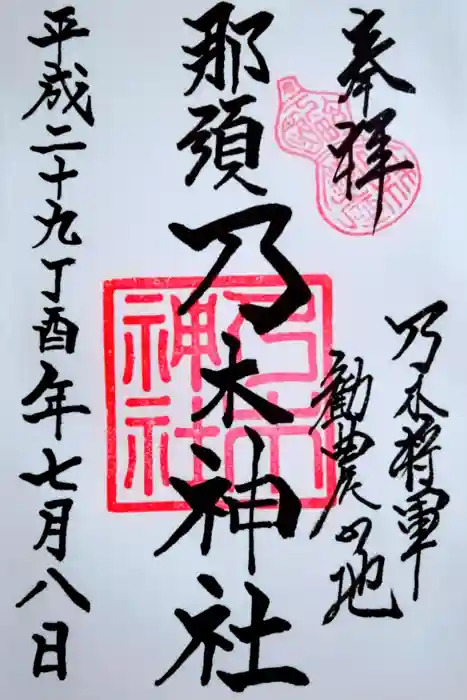 奉拝
乃木将軍
勧農の地
那須乃木神社
乃木
神社
平成二十九丁酉年七月八日